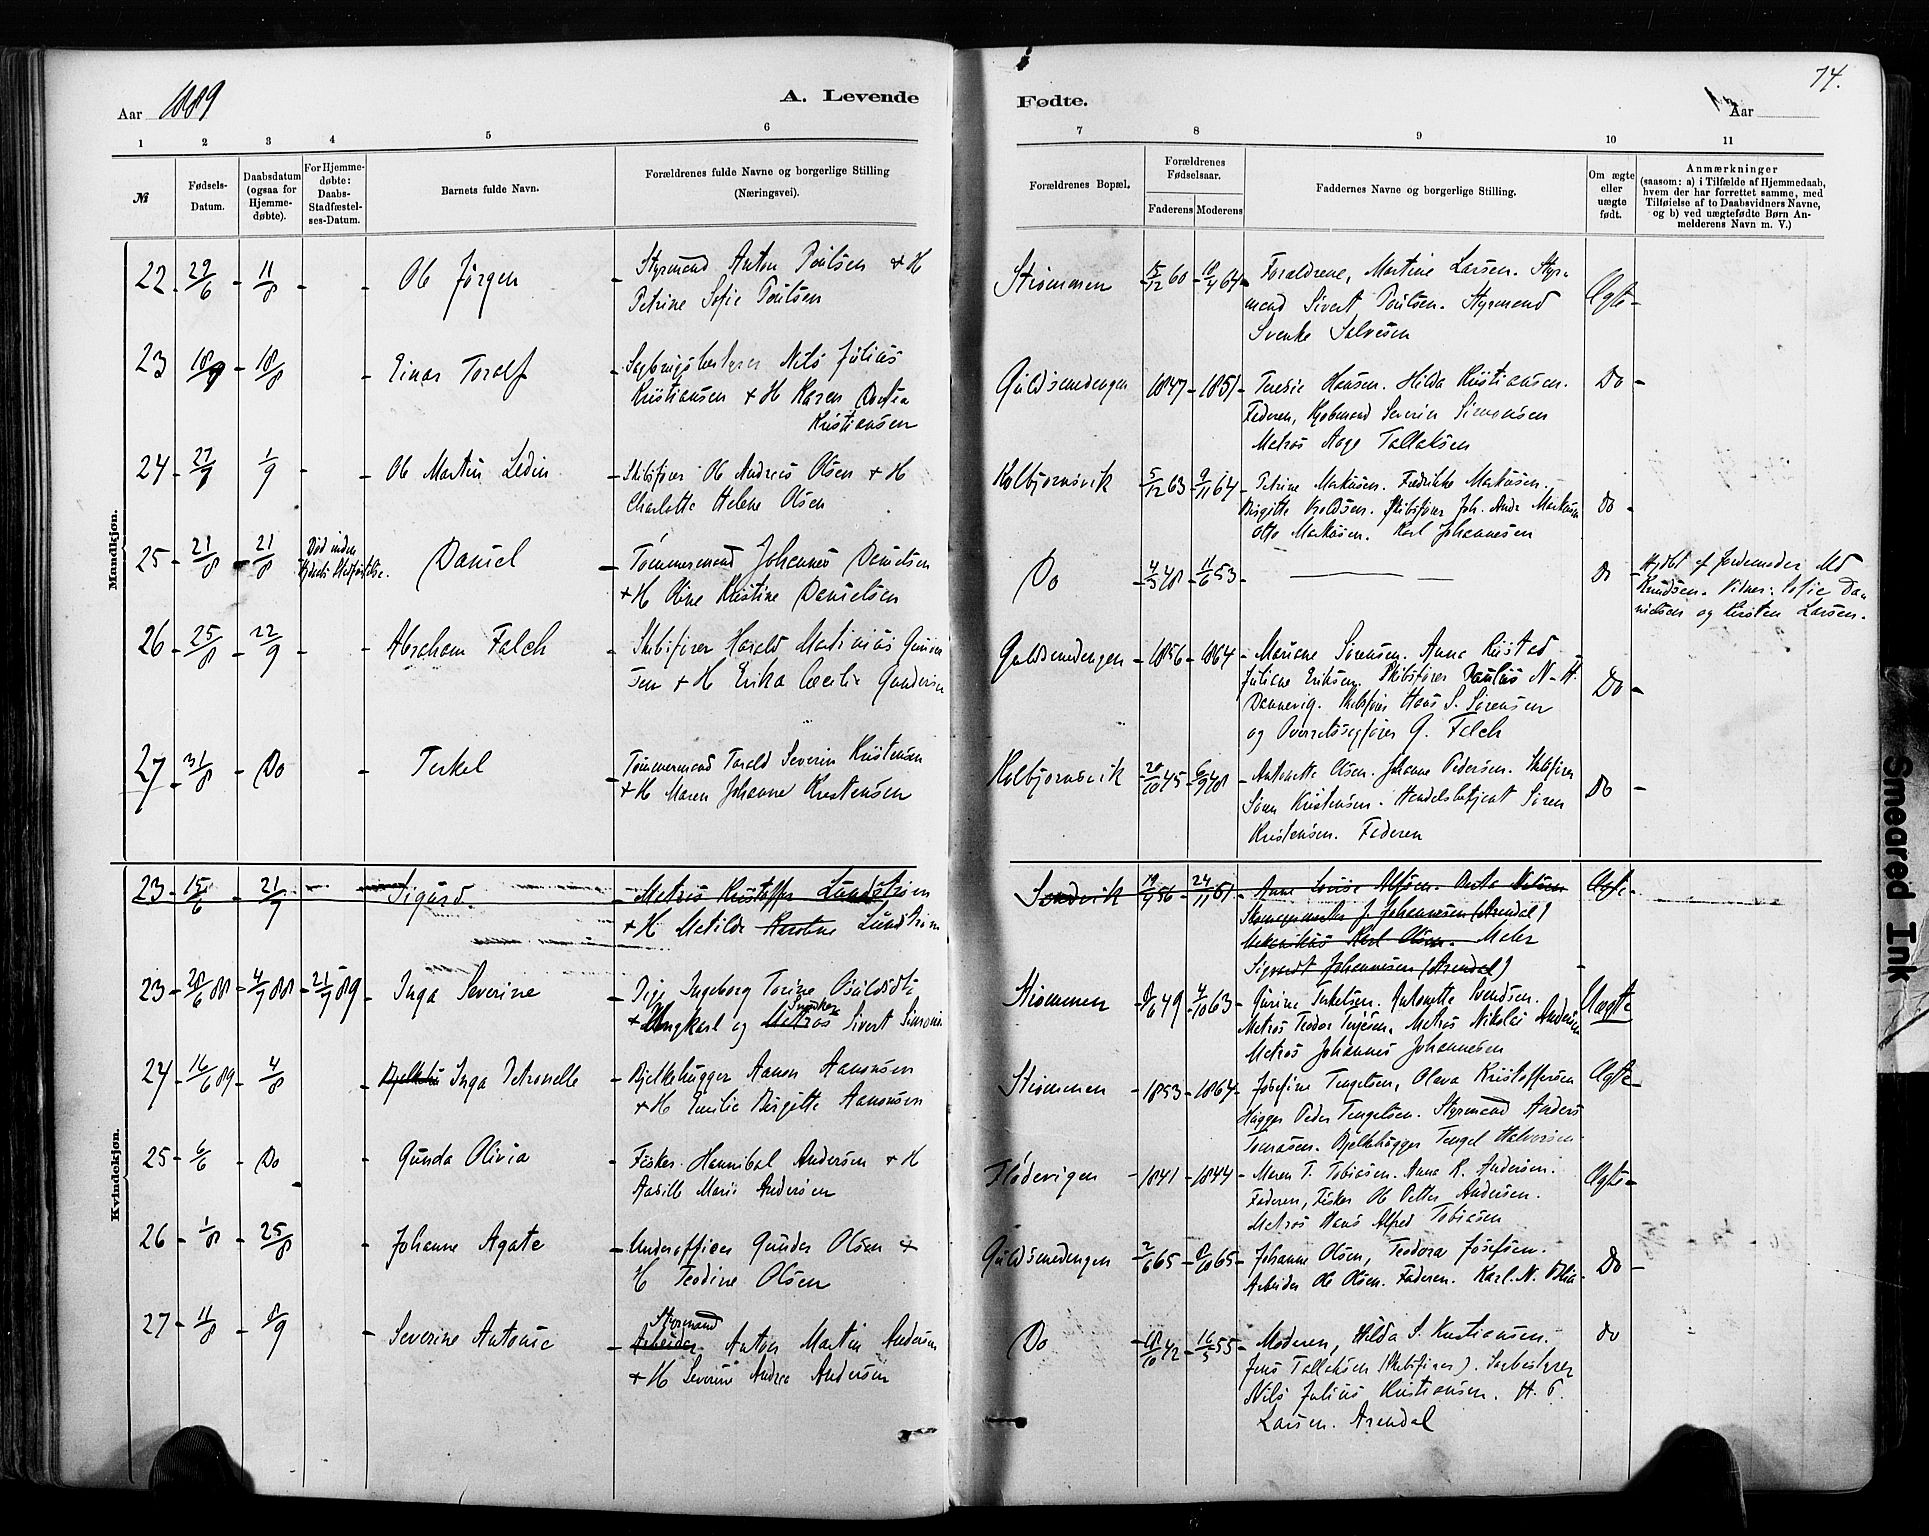 Aar 1889
A. Levende
Fødte.
Aar
74.
1 2 3 4 5 6 7 8 9 10 11
№
Fødsels-
Datum.
Daabsdatum
(ogsaa for
Hjemme-
døbte).
For Hjemme-
døbte:
Daabs-
Stadfæstel-
ses-Datum.
Barnets fulde Navn.
Forældrenes fulde Navne og borgerlige Stilling
(Næringsvei).
Forældrenes Bopæl.
Forældrenes
Fødselsaar.
Faderens Moderens
Faddernes Navne og borgerlige Stilling.
Om ægte
eller
uægte
født.
Anmærkninger
(saasom: a) i Tilfælde af Hjemmedaab,
hvem der har forrettet samme, med
Tilføielse af to Daabsvidners Navne,
og b) ved uægtefødte Børn An-
melderens Navn m. V.)
Mandkjøn.
22 29/6 - 11/8 - - Ob Jørgen - Styrmand Anton Poulsen + H
Petrine Sofie Poulsen
Strømmen 15/12 60 - 18/4 64 - Forældrene, Martine Larsen. Styr-
mand Sivert Poulsen. Styrmand
Svenke Salvesen
Ægte -
23 18/7 - 18/8 - Einar Toralf - Sagbrugsbestyrer Nils Julius
Kristiansen + H Karen
Kristiansen
Guldsmedengen 1847 - 1851 - Teresie Hansen. Hilda Kristiansen.
Faderen, Kjøbmand Severin Simonsen
Matros Aage Tallaksen
Do -
24 27/7 1/9 - - Ob Martin Ledin - Skibsfører Ob Andreas Olsen + H
Charlotte Helene Olsen
Kolbjørnsvik 5/12 63 - 9/11 64 - Petrine Markusen. Fredrikke Markusen.
Birgitte Kjeldsen. Skibsfører Joh. Andr. Markusen
Otto Markusen. Karl Johannesen
Do -
25 - 21/8 - 21/8 Død inden
Kirkens Stadfæstelse. Daniel - Tømmermand Johannes Danielsen
+ H Oline Kristine Danielsen
Do - 4/3 48 - 11/6 53 - Do - Hjdbt af Jordemoder Md
Knudsen. Vidner: Sofie Da-
nielsen og Kirsten Larsen.
26 - 25/8 - 22/9 - - Abraham Falch - Skibsfører Harald Martinius Gunder-
sen + H Erika Cæcilie Gundersen
Guldsmedengen - 1856 - 1864 - Mariane Sørensen. Anna Kristad
Juliane Eriksen. Skibsfører Paulus N. H.
Dannevig. Skibsfører Hans S. Sørensen
og Overretssagfører G. Falch
Do -
27 - 31/8 - Do - Terkel - Tømmermand Torald Severin Kristensen
+ H Maren Johanne Kristensen
Kolbjørnsvik - 20/10 45 - 6/9 48 - Antonette Olsen. Johanne Pedersen. Skibsfører
Sønn Kristensen. Handelsbetjent Søren
Kristensen. Faderen
Do -
Kvindekjøn.
23 - 15/6 - 21/7 - - Sigurd. - Matros Kristoffer Lundstrøm
+ H Matilde Karoline Lundstrøm
Sandvik 19/9 56 - 24/11 61 - Anne Lovise Alfsen. Berta Nielsen
Skomagermester J. Johannesen (Arendal)
Mekanikus Karl Olsen. Maler
Sigvardt Johannesen (Arendal)
Ægte -
23 - 28/6 88 - 4/7 88 - 21/7 89 - Inga Severine - Pige Ingeborg Torine Osuldsdtr
+ Ungkarl og Matros Snedker Sivert Simonsen
Strømmen - 8/6 49 - 4/10 63 - Gurine Terkelsen. Antonette Svendsen.
Matros Teodor Terjesen, Matros Nikolai Andersen
Matros Johannes Johannesen
Uægte
24 - 16/6 89 - 4/8 - Bjelkehu Inga Petronelle - Bjelkehugger Aanon Aanonsen
+ H Emilie Birgitte Aanonsen
Strømmen - 1853 - 1864 - Josefine Tengelsen, Olava Kristoffersen
Hugger Peder Tengelsen. Styrmand Anders
Tomasen. Bjelkehugger Tengel Halvorsen
Ægte -
25 - 6/6 - Do - Gunda Olivia - Fisker Hannibal Andersen + H
Aasille Marie Andersen
Flødevigen - 1841 - 1844 - Maren T. Tobiasen. Anna K. Andersen.
Faderen, Fisker Ob Petter Andersen.
Matros Hans Alfred Tobiasen
Ægte -
26 - 1/8 - 25/8 - Johanne Agate - Underofficer Gunder Olsen +
H Teodine Olsen
Guldsmedengen - 2/6 65 - 8/10 65 - Johanne Olsen, Teodora Josefsen.
Arbeider Ob Olsen. Faderen. Karl. N.
Do -
27 - 11/8 - 8/9 - Severine Antonie - Arbeider Styrmand Anton Martin Andersen
+ H Severine Andrea Andersen
Do - 18/10 42 - 16/5 55 - Moderen, Hilda S. Kristiansen.
Jens Tallaksen (Skibsfører). Sagbestyrer
Nils Julius Kristiansen. H. P.
Larsen. Arendal
do
Smeared Ink